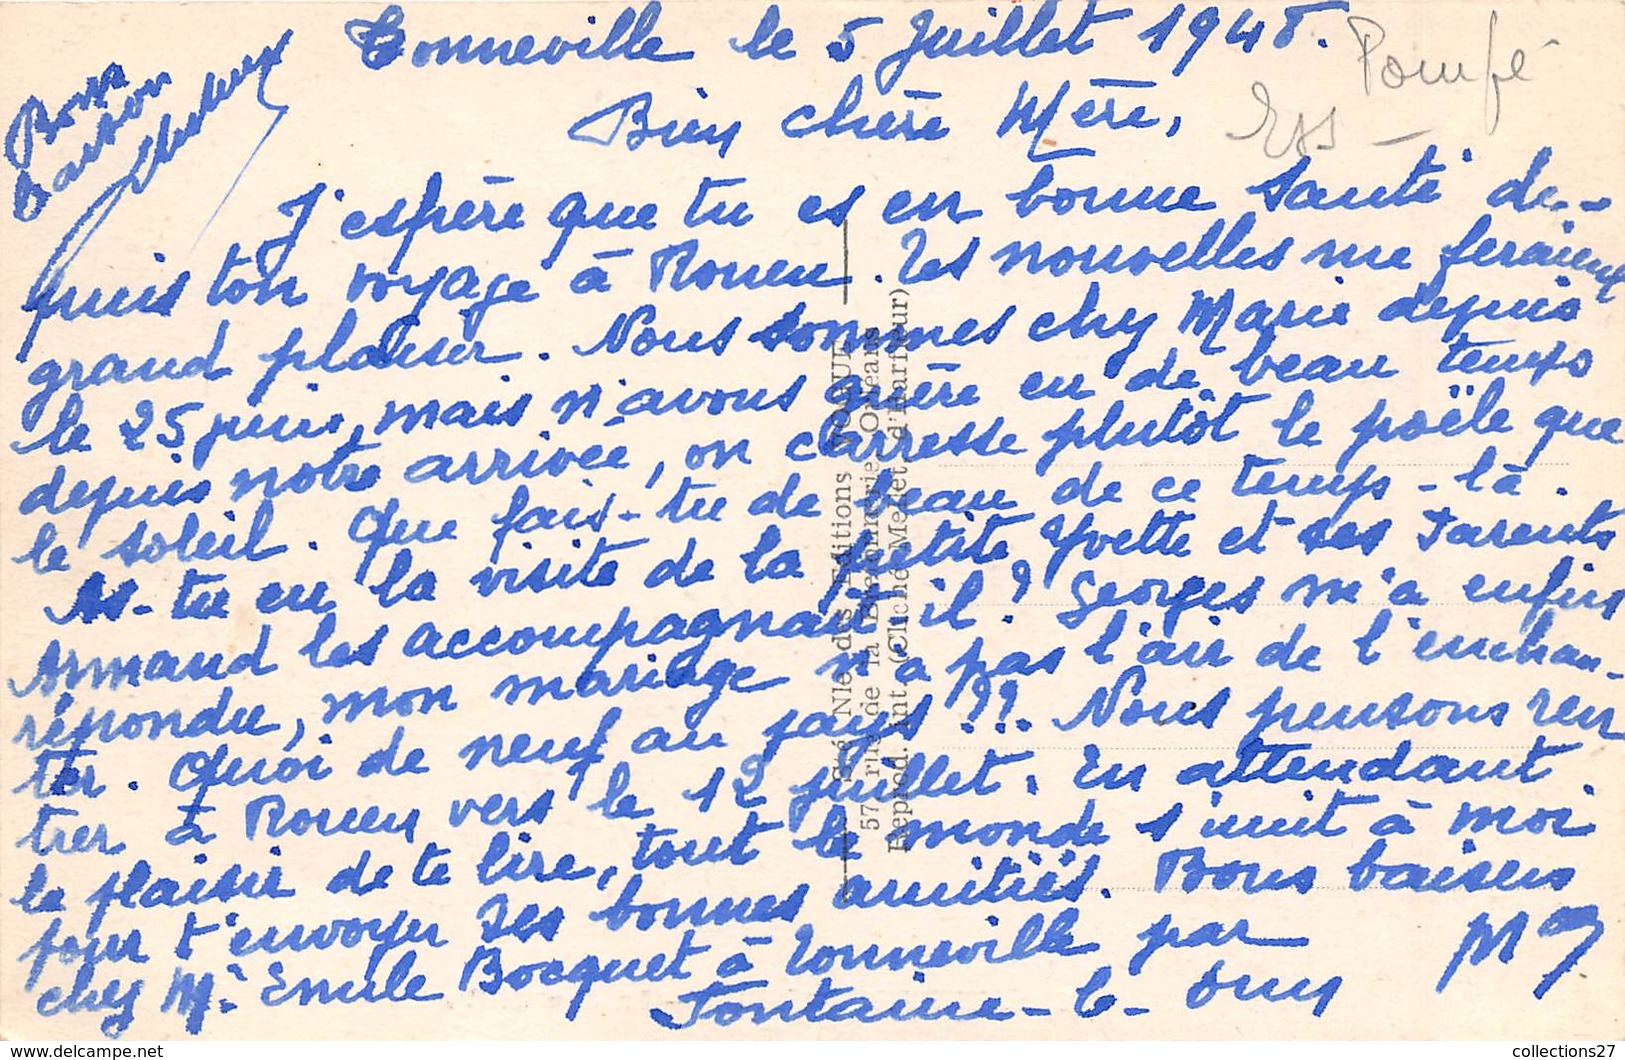 Tonneville le 5 Juillet 1948.
Pompé
Bons
Baisers
Bien chère Mère,
J'espère que tu es en bonne santé de-
puis ton voyage à Rouen. Tes nouvelles me feraient
grand plaisir. Nous sommes chez Marie depuis
le 25 juin, mais n'avons guère eu de beau temps
depuis notre arrivée, on carresse plutôt le poële que
le soleil. Que fais-tu de beau de ce temps-là.
As-tu eu la visite de la petite Yvette et ses Parents
Armand les accompagnait il? Georges m'a enfin
répondu, mon mariage n'a pas l'air de l'enchan-
ter. Quoi de neuf au pays??. Nous pensons ren
trer à Rouen vers le 12 juillet. En attendant
le plaisir de te lire, tout le monde s'unit à moi
pour t'envoyer ses bonnes amitiés. Bons baisers
chez Mr Emile Bocquet à Tonneville par
Fontaine-le-Dun
Sté Nle des Editions VOQUE
57, rue de la Bretonnerie, Orléans
Reprod. int (Cliché Mellet d'Harfleur)
collections27